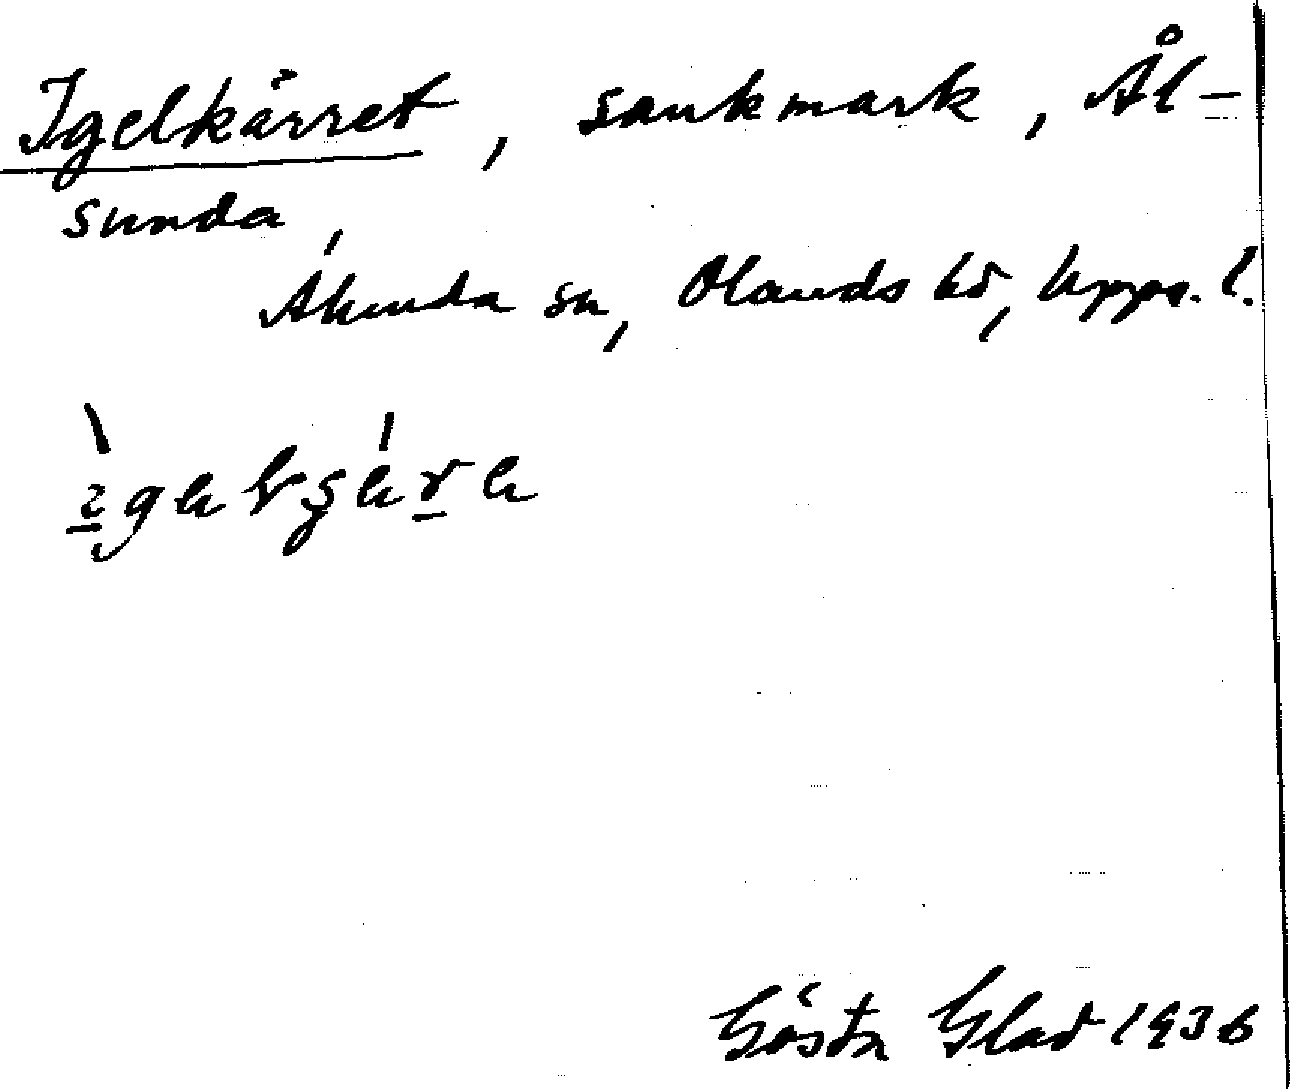 Igelkärret, sankmark, Ål-
sunda,
Akunda sn, Olands hd, Upps. l.
Gösta Glad 1936